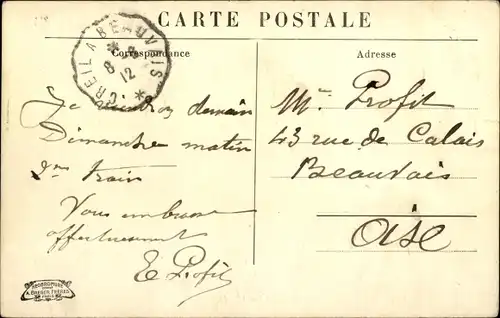 CARTE POSTALE
Correspondance
Adresse
CREIL A BEAUVAIS
8 - 2
12
Je viendrai demain
Dimanche matin
2me train
Vous embrasse
affectueusement
E Profit
Mr. Profit
43 rue de Calais
Beauvais
Oise
A. BREGER FRÈRES
PARIS